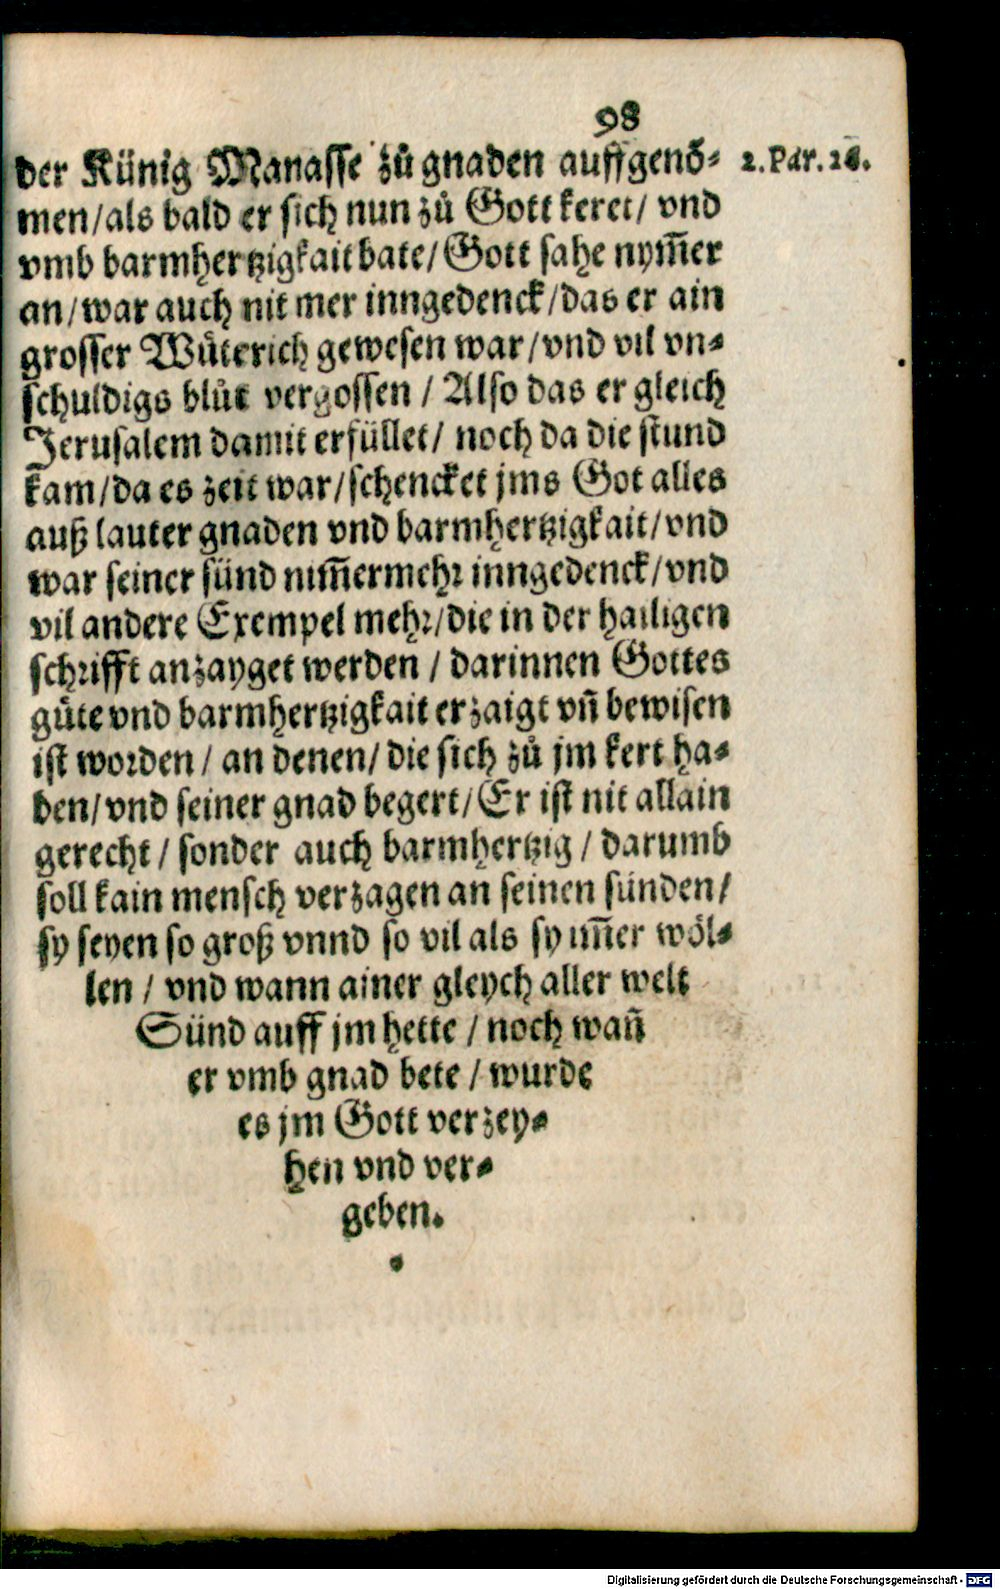 98
der Künig Manasse zů gnaden auffgenõ-
2. Par. 28.
men/als bald er sich nun zů Gott keret/ vnd
vmb barmhertzigkait bate/Gott sahe nym̃er
an/war auch nit mer inngedenck/das er ain
grosser Wůterich gewesen war/vnd vil vn-
schuldigs blůt vergossen / Also das er gleich
Jerusalem damit erfüllet/ noch da die stund
kam/da es zeit war/schencket jms Got alles
auß lauter gnaden vnd barmhertzigkait/vnd
war seiner sünd nim̃ermehr inngedenck/vnd
vil andere Exempel mehr/die in der hailigen
schrifft anzayget werden / darinnen Gottes
gůte vnd barmhertzigkait erzaigt vñ bewisen
ist worden / an denen/ die sich zů jm kert ha-
ben/vnd seiner gnad begert/Er ist nit allain
gerecht / sonder auch barmhertzig / darumb
soll kain mensch verzagen an seinen sünden/
sy seyen so groß vnnd so vil als sy im̃er wöl-
len / vnd wann ainer gleych aller welt
Sünd auff jm hette / noch wañ
er vmb gnad bete / wurde
es jm Gott verzey-
hen vnd ver-
geben.
Digitalisierung gefördert durch die Deutsche Forschungsgemeinschaft - DFG